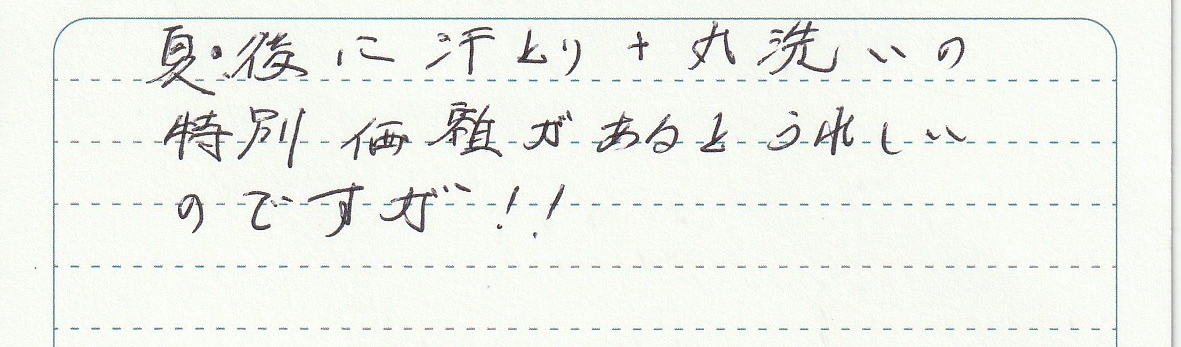 夏・後に汗とり+丸洗いの
特別価額があるとうれしい
のですが!!